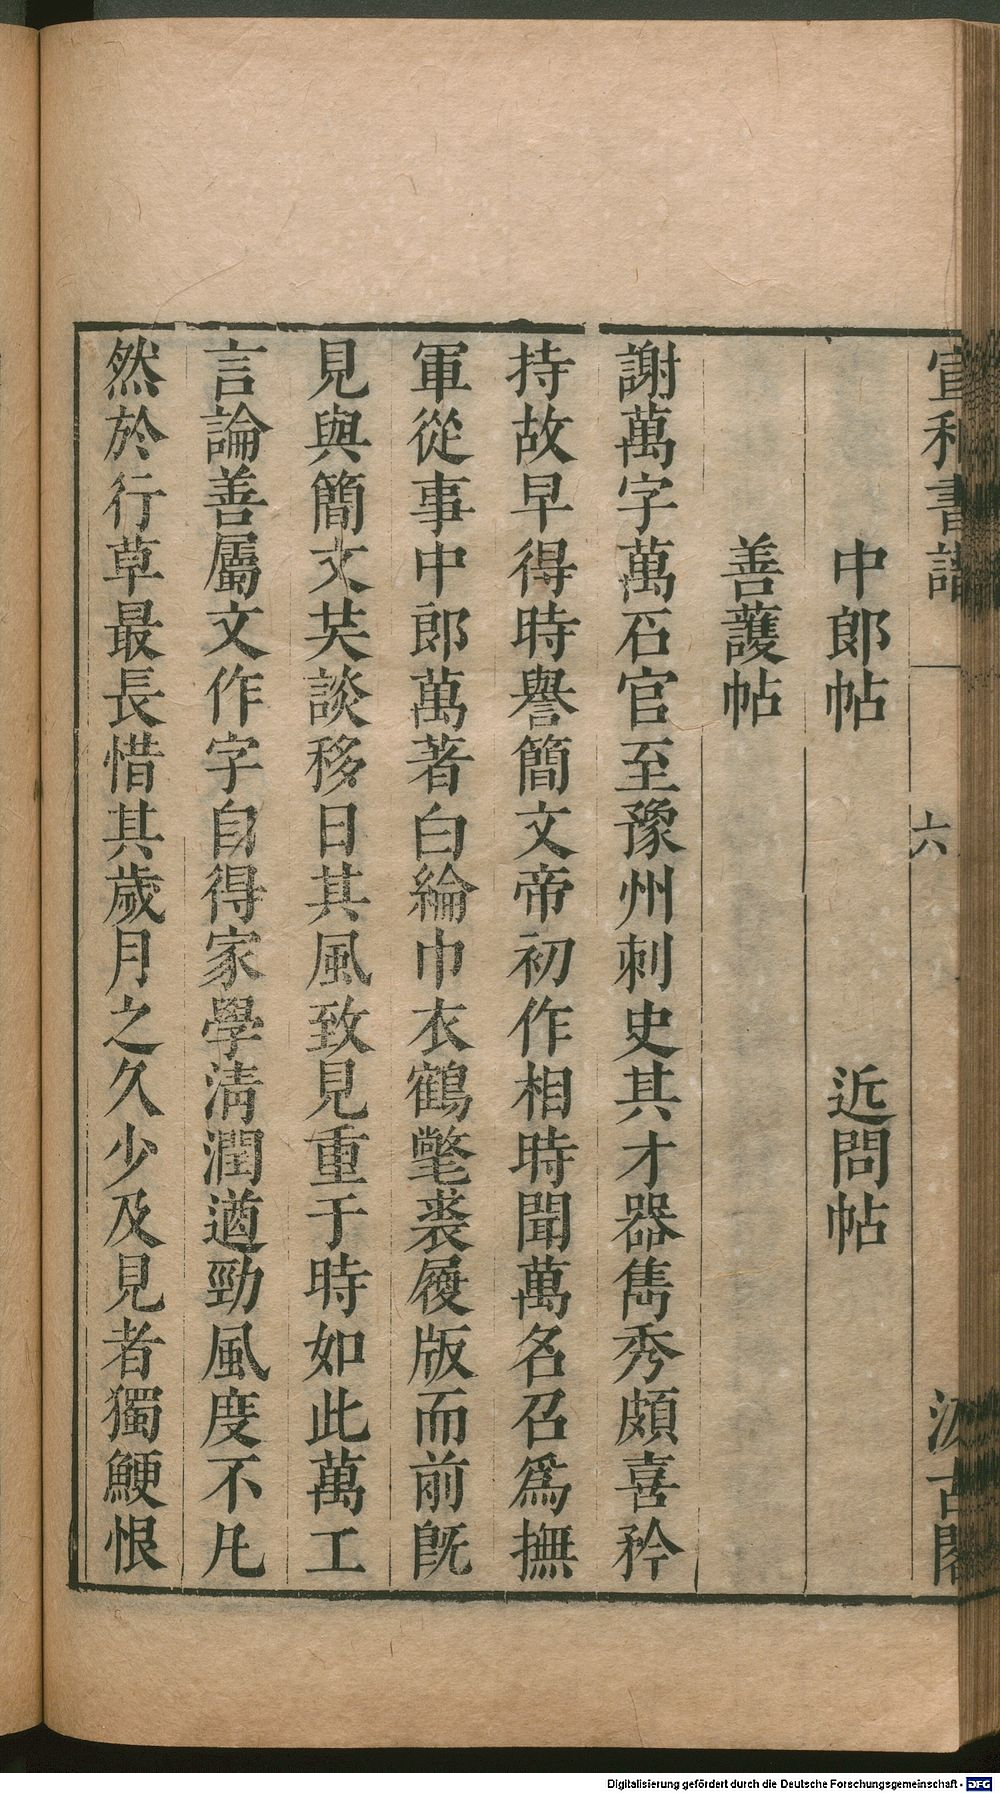 宣和書譜 六 汲古閣
中郎帖 近問帖
善護帖
謝萬字萬石官至豫州刺史其才器雋秀頗喜矜
持故早得時譽簡文帝初作相時聞萬名召爲撫
軍從事中郎萬著白綸巾衣鶴氅裘履版而前旣
見與簡文共談移日其風致見重于時如此萬工
言論善屬文作字自得家學淸潤遒勁風度不凡
然於行草最長惜其歲月之久少及見者獨鯁恨
Digitalisierung gefördert durch die Deutsche Forschungsgemeinschaft - DFG